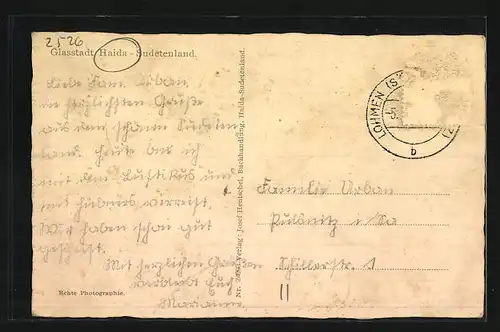 2526
Glasstadt Haida - Sudetenland.
Liebe Fam. Urban
die herzlichsten Grüße
aus dem schönen Sudeten
land. Heute bin ich
mit dem Luftikus und
mit Hübners verreist.
Wir haben schon gut
gespeist.
Mit herzlichen Grüßen
verbleibt Euch
Marianne
Echte Photographie.
Verlag: Josef Hentschel, Buchhandlung, Haida-Sudetenland.
LOHMEN (S
b
Familie Urban
Pulsnitz i/Sa
Schillerstr. 1